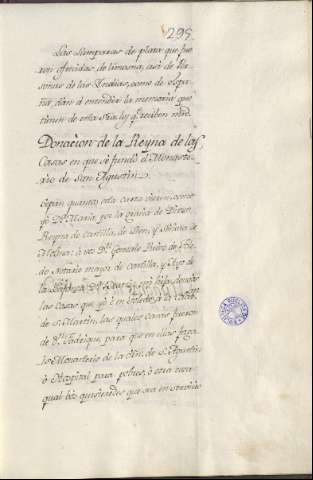 295.
Las Lamparas de plata que fue
ron ofrecidas de limosna, asi de
de las Yndias, como de Espa
ña, dan à entender la memoria que
tienen de esta Sta. Ymagen
Donacion de la Reyna de las
Casas en que se fundó el Monaste-
rio de San Agustin.
Sepan quantos esta carta vieren, como
yo Dª. Maria, por la gracia de Dios
Reyna de Castilla, de Leon, y Señora de
Molina: à vos Dn. Gonzalo Ruiz de Tole
do Notario mayor de Castilla, y Ayo de
la Dª.
las Casas que yo è en Toledo à la
de Sn. Martin, las quales casas fueron
de Dn. Fadrique, para que en ellas faga
is Monasterio de la Orn. de Sn. Agustin
ò Hospital para pobres, ò otra cosa
qual vos quisieredes que sea en servicio